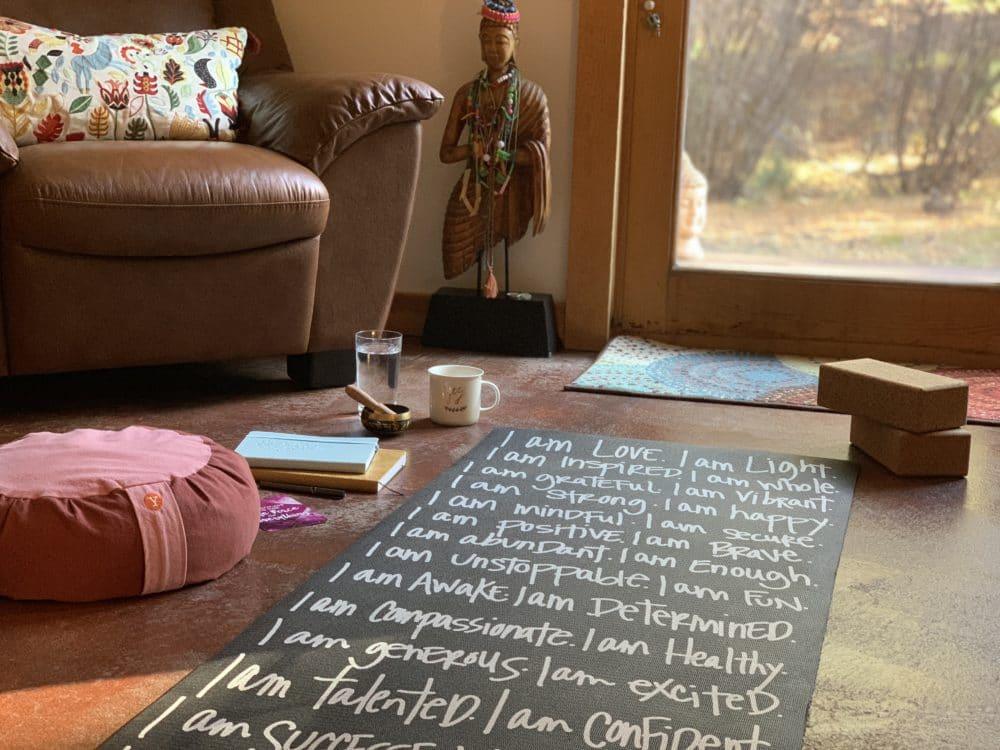 I am LOVE. I am LIGHT.
I am INSPIRED. I am whole.
I am grateful. I am vibrant.
I am strong. I am happy.
I am mindful. I am secure.
I am positive. I am Brave.
I am abundant. I am Enough.
I am unstoppable. I am Fun.
I am Awake. I am DeTermineD.
I am compassionate. I am Healthy.
I am generous. I am exciteD.
I am TalenteD. I am Confident.
I am